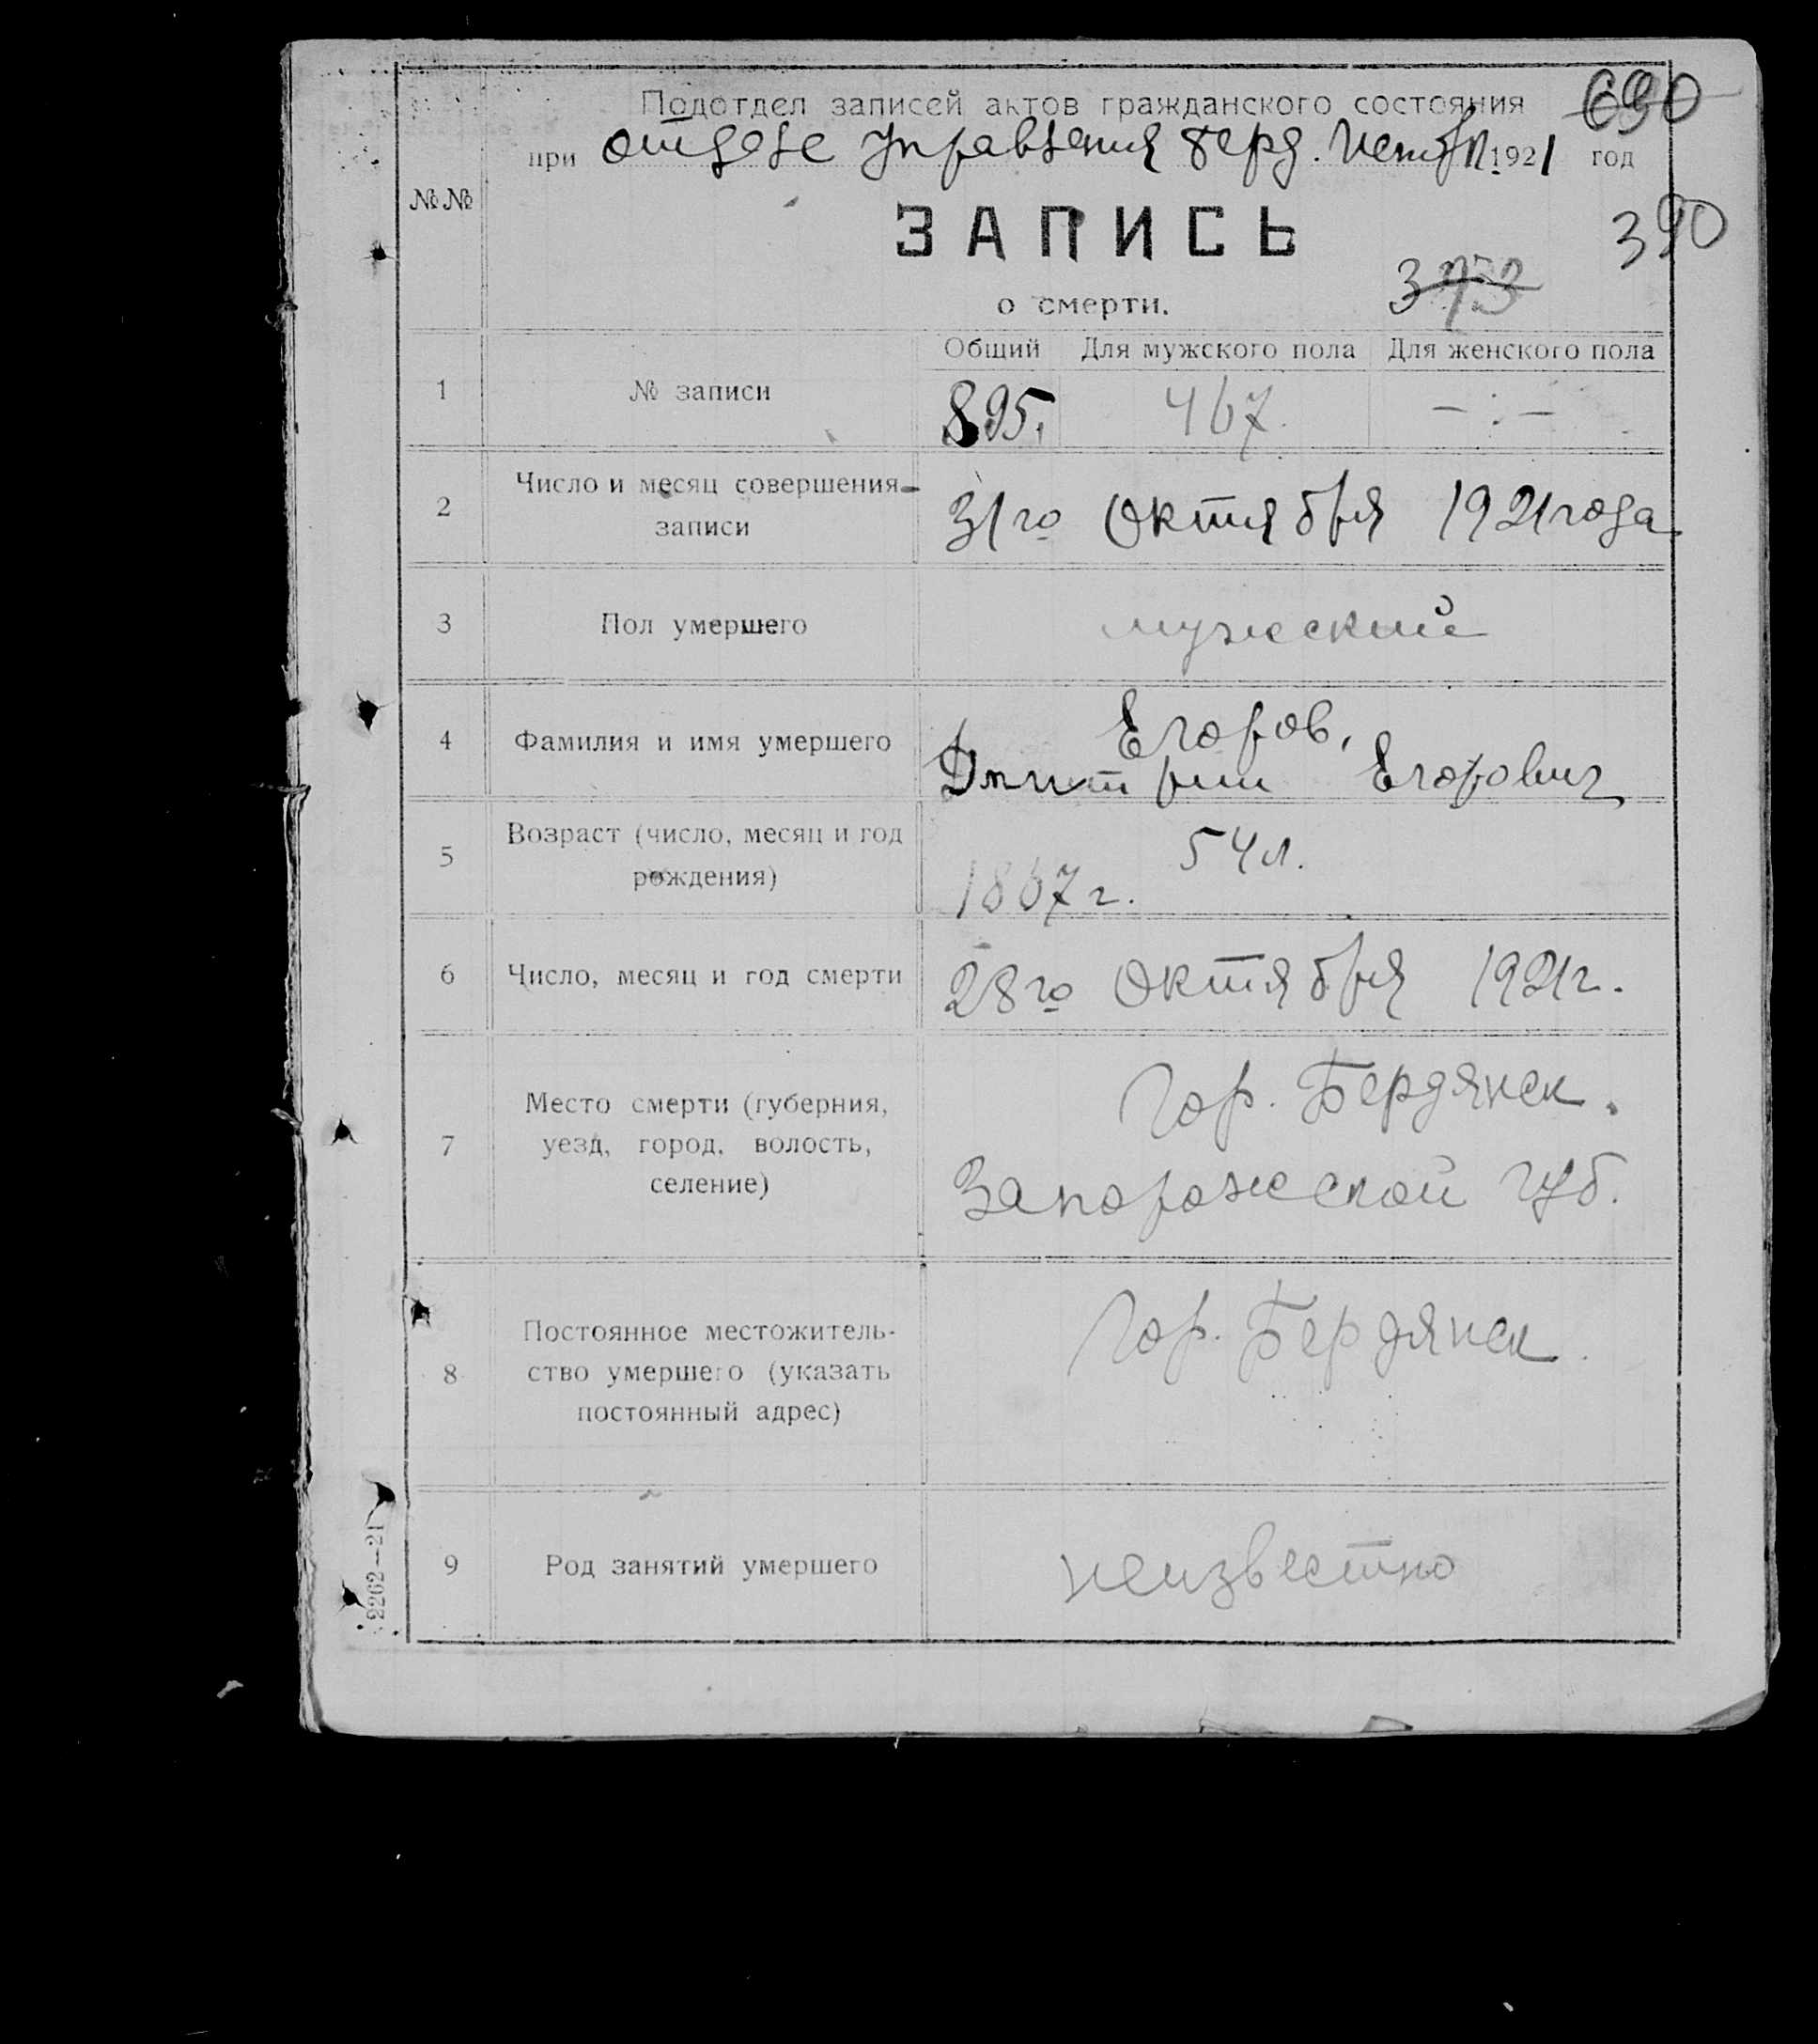 Подотдел записей актов гражданского состояния 690
при отделе Управления Берд. 1921 год
№№
ЗАПИСЬ
390
о смерти.
373
Общий Для мужского пола Для женского пола
1 № записи 895. 467. - : -
2 Число и месяц совершения
записи
31го Октября 1921 года
3 Пол умершего мужский
4 Фамилия и имя умершего
Егоров,
Дмитрий Егорович
5 Возраст (число, месяц и год
рождения)
54 л.
1867 г.
6 Число, месяц и год смерти 28го Октября 1921 г.
7 Место смерти (губерния,
уезд, город, волость,
селение)
Гор. Бердянск.
Запорожской губ.
8 Постоянное местожитель-
ство умершего (указать
постоянный адрес)
Гор. Бердянск.
9 Род занятий умершего неизвестно
2262—21